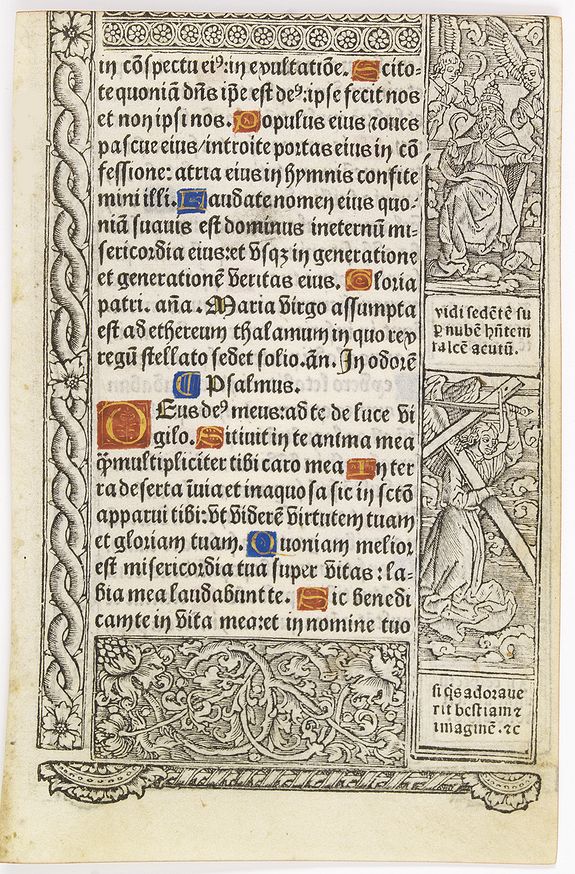 in cõspectu eiꝰ: in exultatiõe. Scito⸗
te quoniã dñs ip̃e est deꝰ: ipse fecit nos
et non ipsi nos. Populus eius ⁊ oues
pascue eius / introite portas eius in cõ
fessione: atria eius in hymnis confite
mini illi. Laudate nomen eius quo⸗
niã suauis est dominus ineternũ mi⸗
sericordia eius: et vsqꝫ in generatione
et generationẽ veritas eius. Gloria
patri. aña. Maria virgo assumpta
est ad ethereum thalamum in quo rex
regũ stellato sedet solio. añ. In odorẽ
C Psalmus.
DEus deꝰ meus: ad te de luce vi
gilo. Sitiuit in te anima mea
q̃ȝ multipliciter tibi caro mea In ter
ra deserta ĩuia et inaquosa sic in sctõ
apparui tibi: vt viderẽ virtutem tuam
et gloriam tuam. Quoniam melior
est misericordia tua super vitas: la⸗
bia mea laudabunt te. Sic benedi
cam te in vita mea: et in nomine tuo
vidi sedẽtẽ su
ꝑ nubẽ hñtem
falcẽ acutũ.
si q̃s adoraue
rit bestiam ⁊
imaginẽ. ⁊c